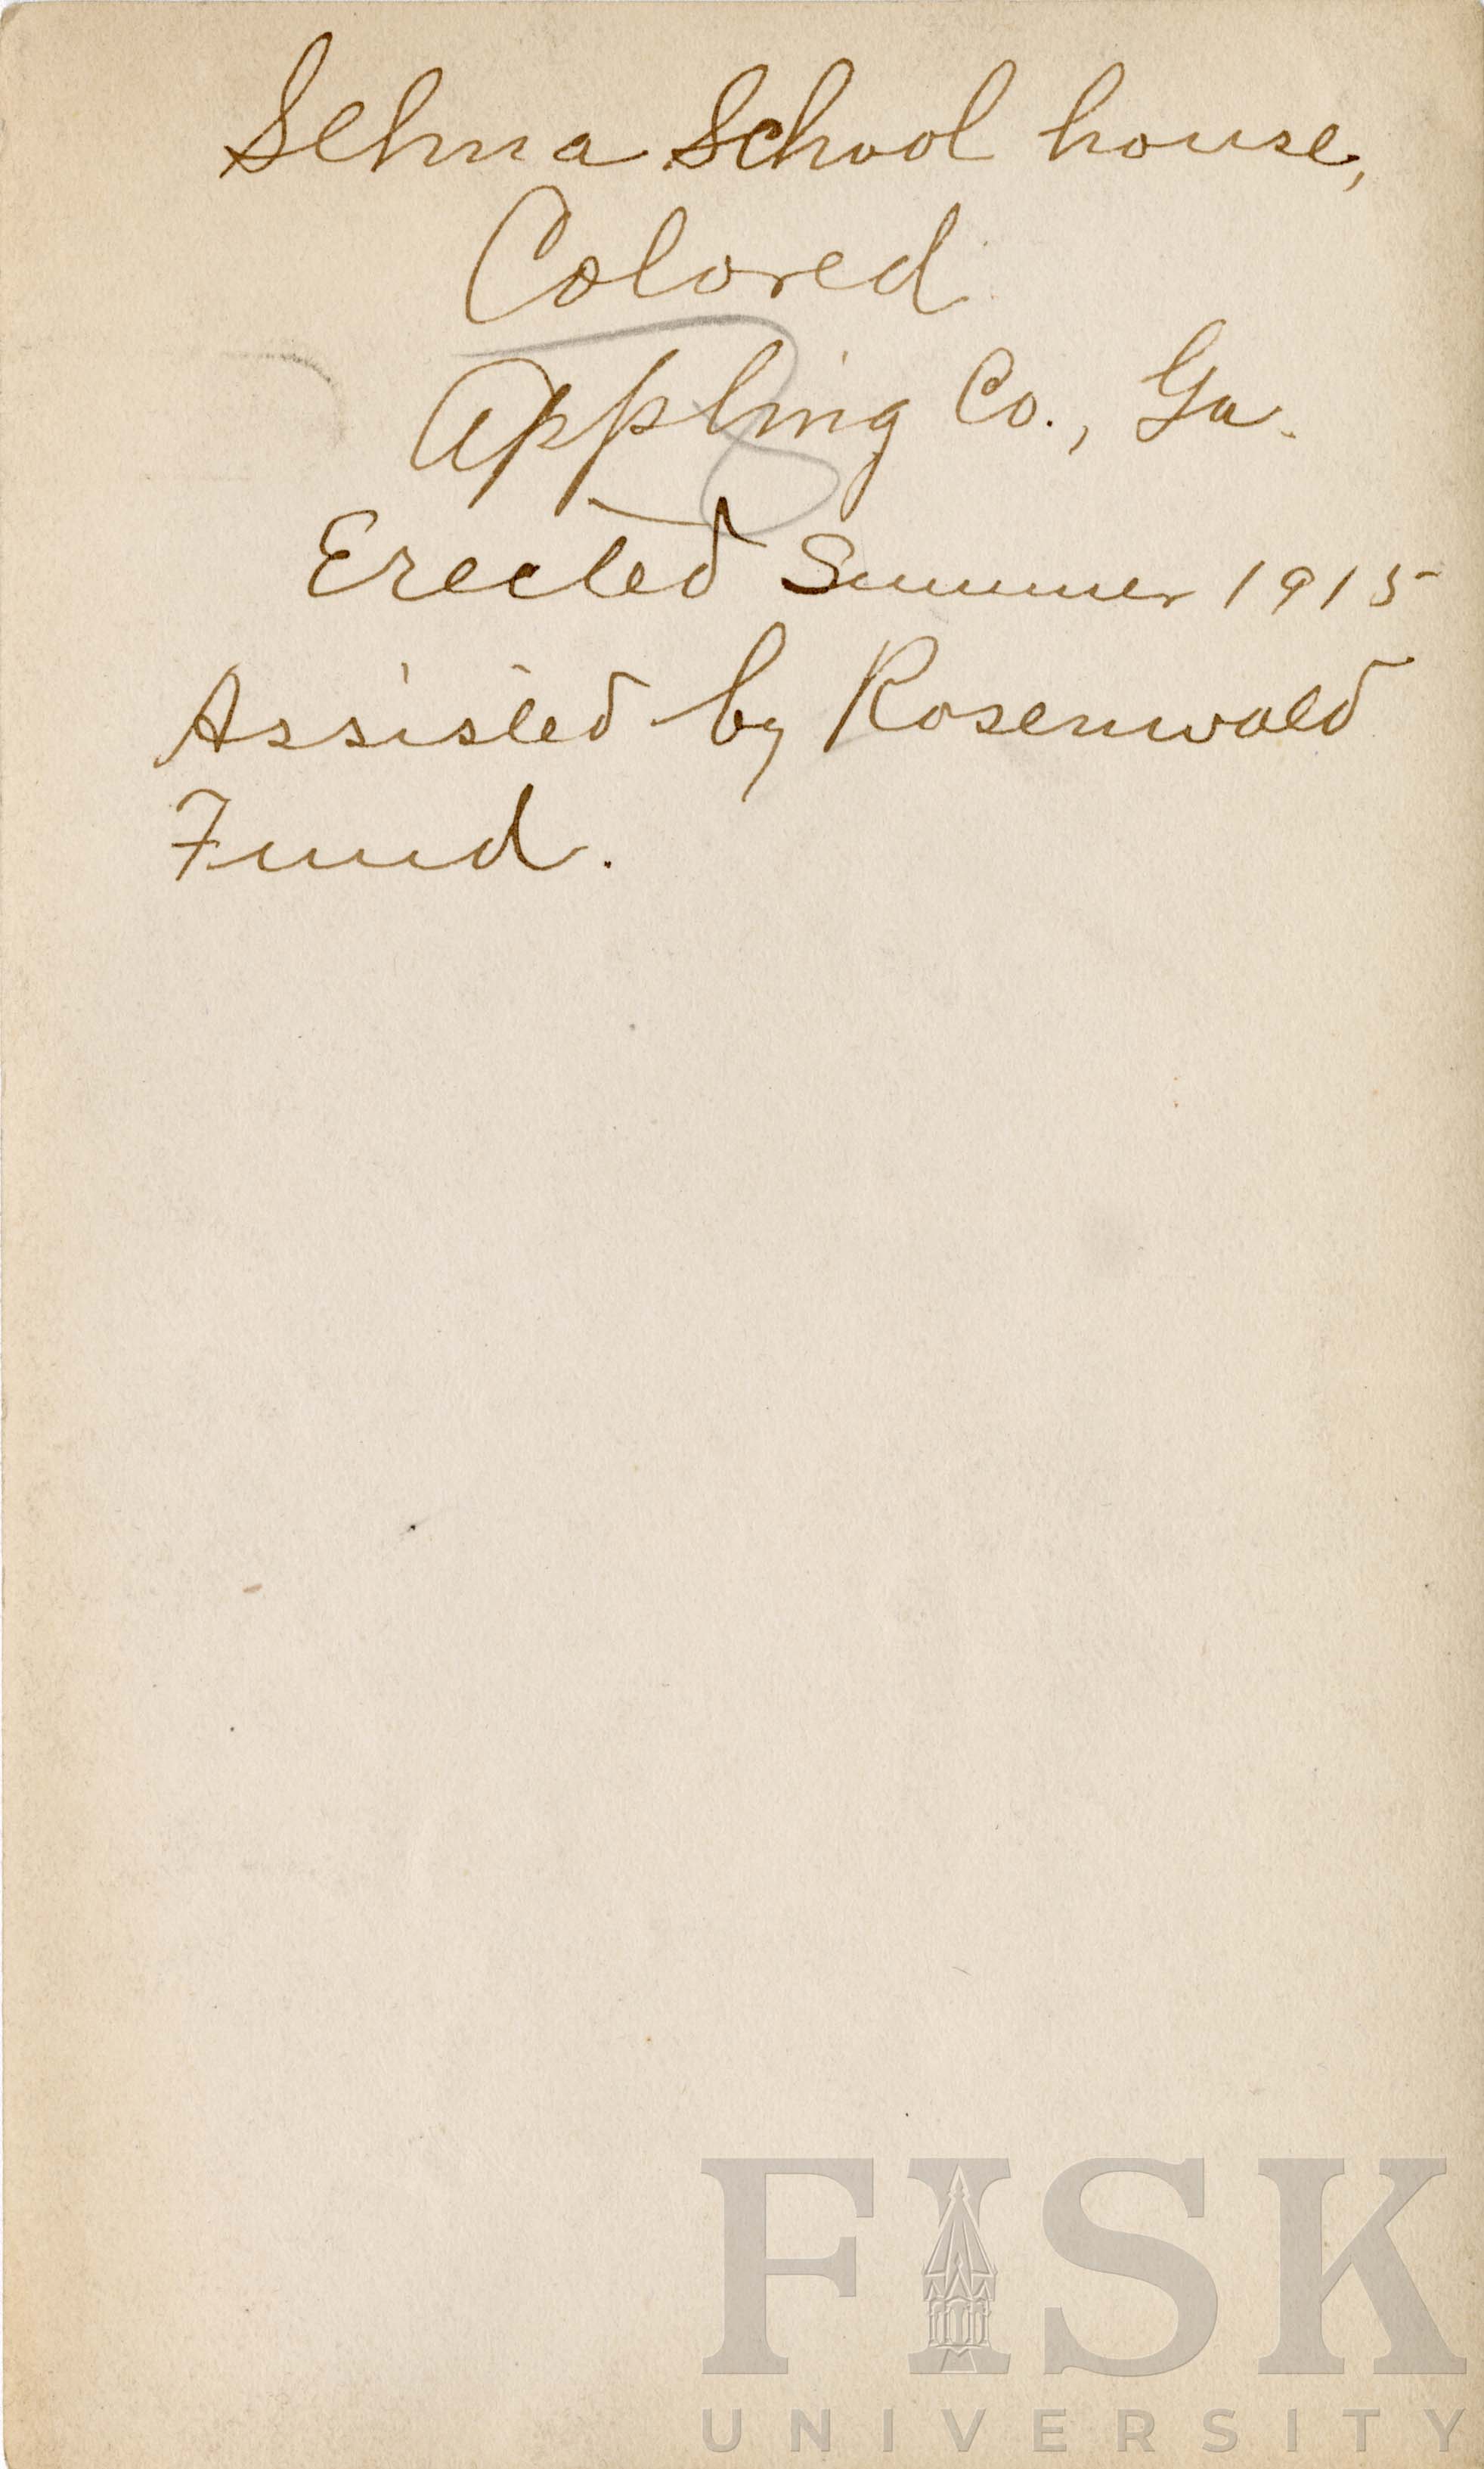 Selma School house,
Colored
Appling Co., Ga.
Erected Summer 1915
Assisted by Rosenwald
Fund.
FISK
UNIVERSITY